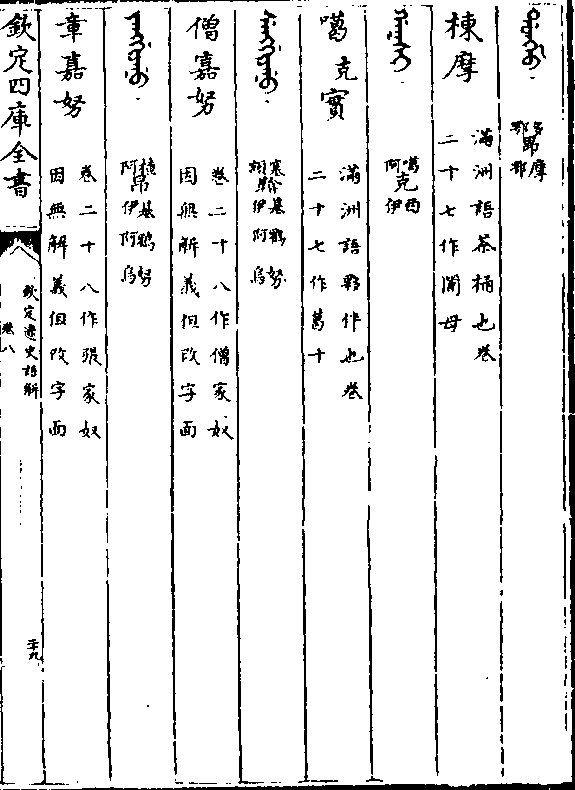 ᡩᠣᠩᠮᠣ 多鄂昂摩鄂
棟摩 滿洲語茶桶也卷
二十七作闍母
ᡤᠠᡴᠰᡳ 噶阿克西伊
噶克實 滿洲語夥伴也卷
二十七作葛十
ᠰᡝᠩᡤᡳᠶᠠᠨᡠ 塞額鞥基伊鴉阿努烏
僧嘉努 卷二十八作僧家奴
因無解義但改字面
ᠵᠠᠩᡤᡳᠶᠠᠨᡠ 楂阿昂基伊鴉阿努烏
章嘉努 卷二十八作張家奴
因無解義但改字面
欽定四庫全書
欽定遼史語解
卷八
二十九